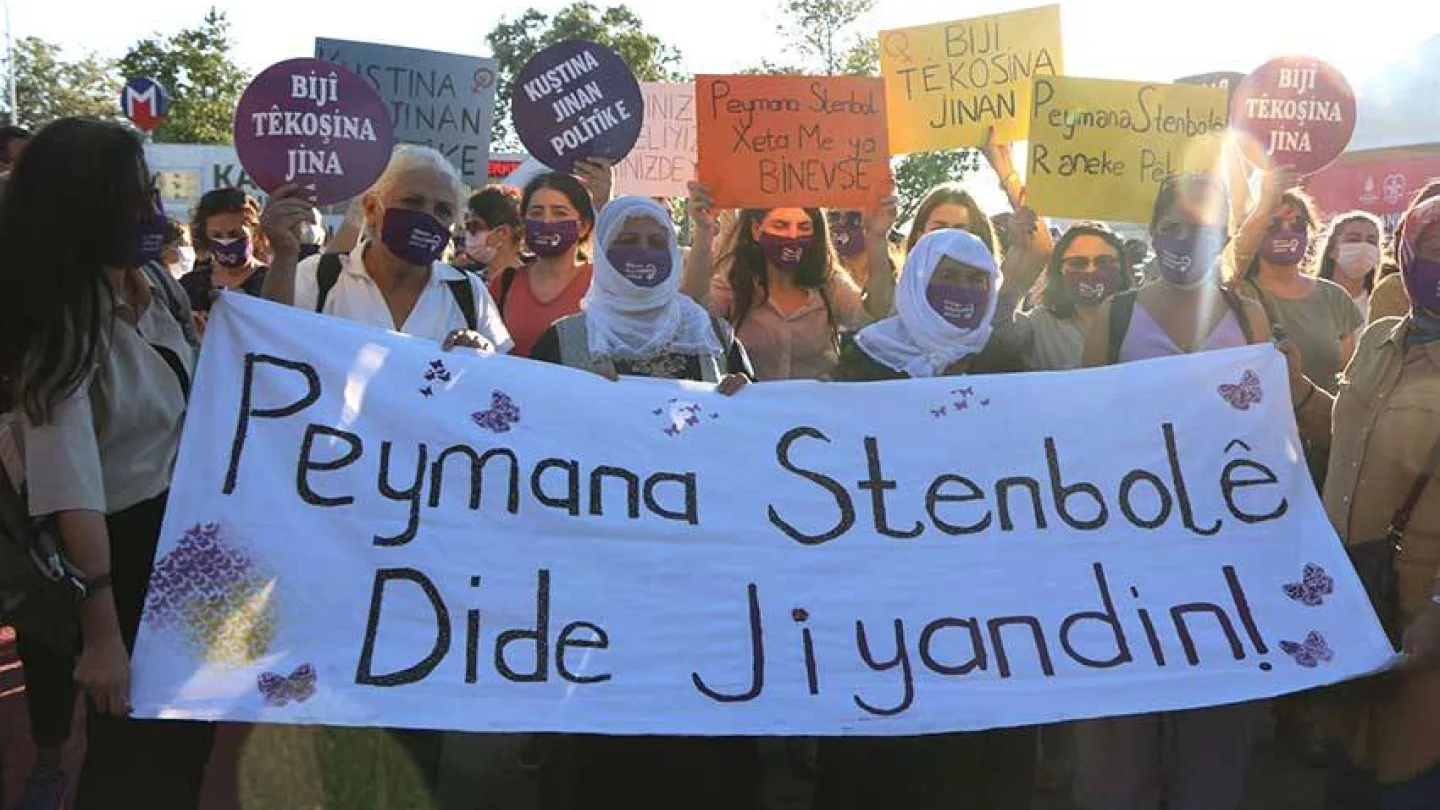 BIJÎ
TÊKOŞÎNA
JÎNA
KUŞTINA
JINAN
KUŞTINA
JINAN
POLÎTÎKE
Peymana Stenbol
Xeta Me ya
BINEVSE
BIJI
TÊKOSÎNA
JINAN
Peymana Stenbolê
Raneke
BIJÎ
TÊKOŞÎNA
JINA
M
Peymana Stenbolê
Dide Jiyandin!